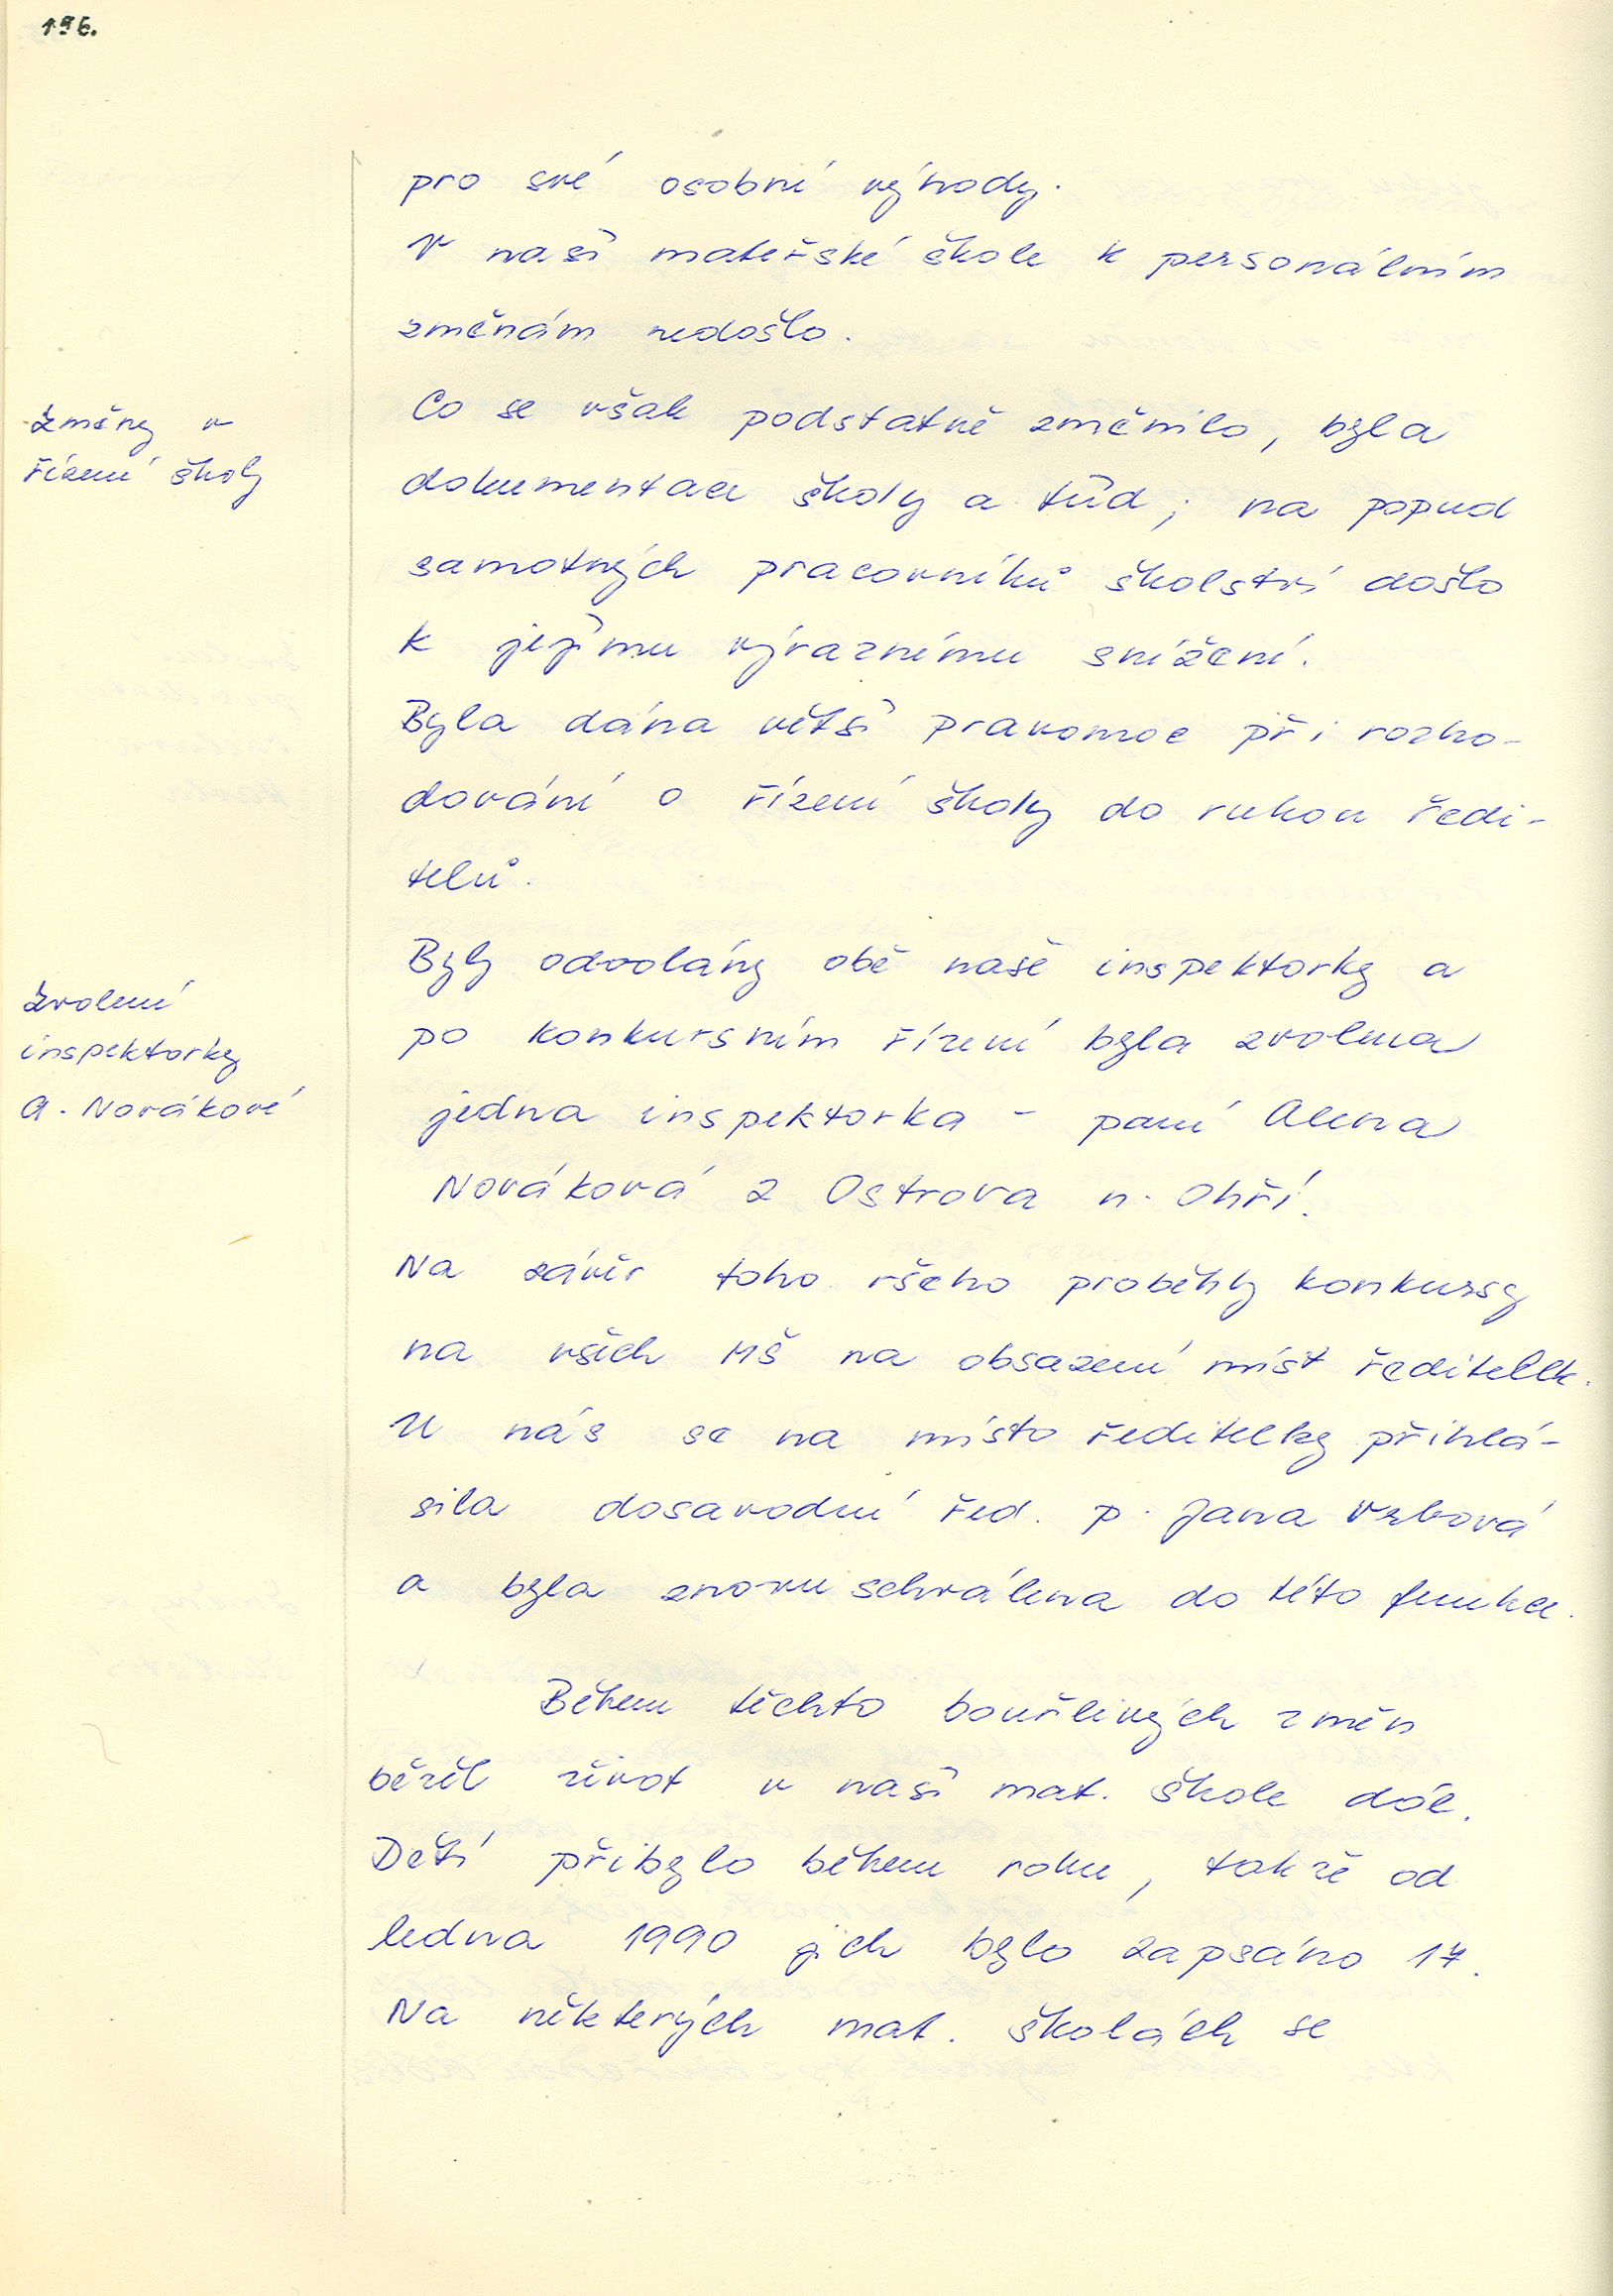 196.
pro své osobní výhody.
V naší mateřské škole k personálním
změnám nedošlo.
Změny v
řízení školy
Co se však podstatně změnilo, byla
dokumentace školy a tříd; na popud
samotných pracovníků školství došlo
k jejímu výraznému snížení.
Byla dána větší pravomoc při rozho-
dování o řízení školy do rukou ředi-
telů.
Zvolení
inspektorky
A. Novákové
Byly odvolány obě naše inspektorky a
po konkursním řízení byla zvolena
jedna inspektorka - paní Alena
Nováková z Ostrova n. Ohří.
Na závěr toho všeho proběhly konkursy
na všech MŠ na obsazení míst ředitelek.
U nás se na místo ředitelky přihlá-
sila dosavadní řed. p. Jana Vrbová
a byla znovu schválena do této funkce.
Během těchto bouřlivých změn
běžel život v naší mat. škole dál.
Dětí přibylo během roku, takže od
ledna 1990 jich bylo zapsáno 17.
Na některých mat. školách se